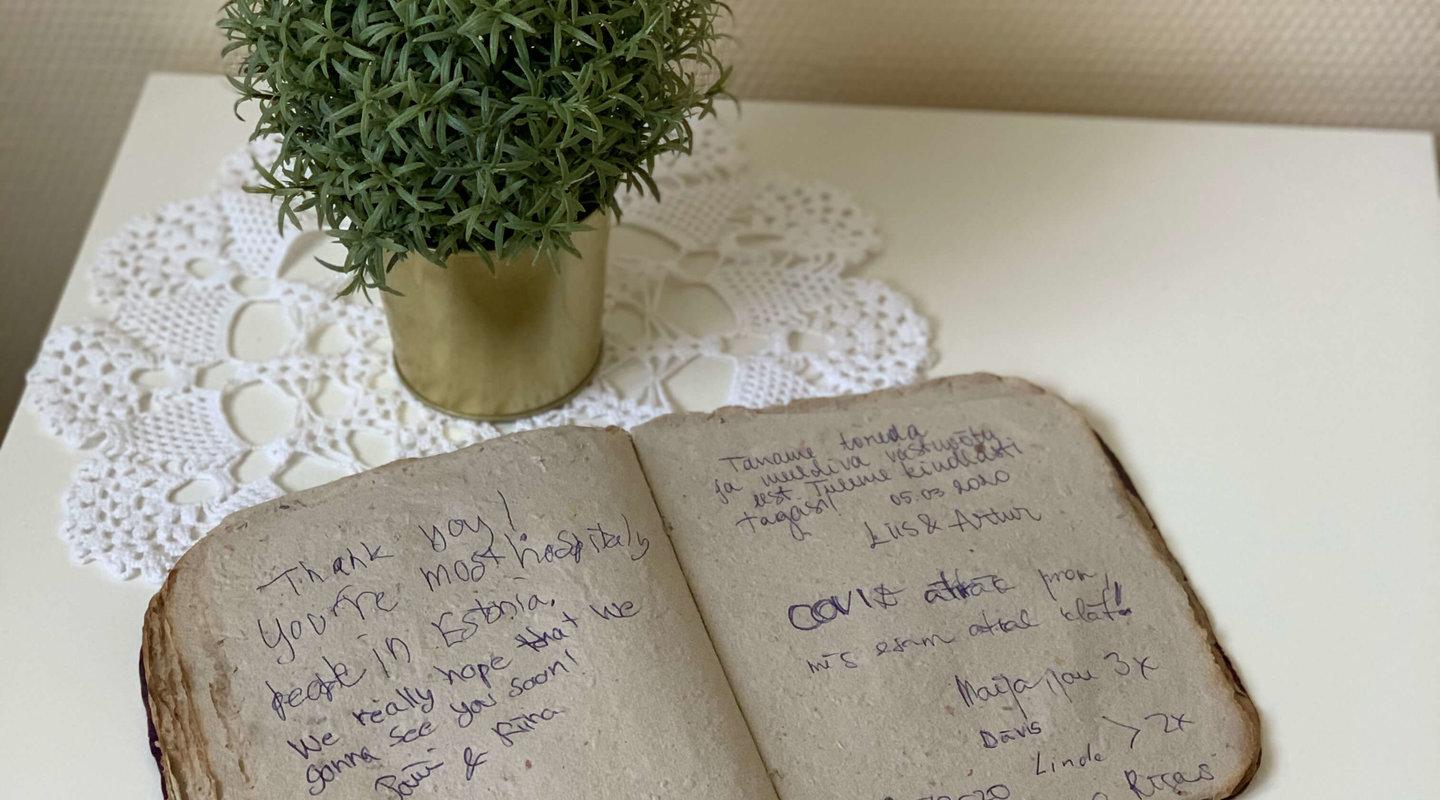 Thank you!
You're most hospitaly
people in Estonia.
We really hope that we
gonna see you soon!
&
Täname toreda
ja meeldiva vastuvõtu
eest. Tuleme kindlasti
tagasi!
05.03 2020
Liis & Artur
COVID atkāc prom,
mēs esam atkal klāt!
Maija jau 3x
Dāvis
Linda > 2x
2020
Rīgas